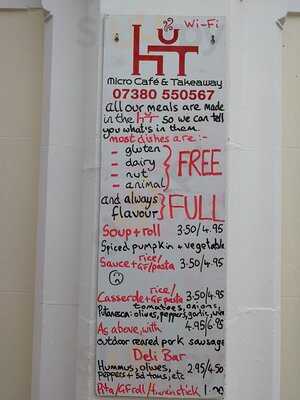 Wi-Fi
hüT
Micro Café & Takeaway
07380 550567
all our meals are made
in the hüT so we can tell
you what's in them.
most dishes are:-
- gluten
- dairy
- nut
- animal
FREE
and always
flavour
FULL
Soup+roll 3.50/4.95
Spiced pumpkin + vegetable
Sauce+rice/GF/pasta 3.50/4.95
Casserole+rice/GF pasta 3.50/4.95
tomatoes, onions,
Putanesca: olives, peppers, garlic, wine
As above, with 4.95/6.95
outdoor reared pork sausage
Deli Bar
Hummus, olives,
peppers + sd toms, etc 2.95/4.50
Pita/GF roll/